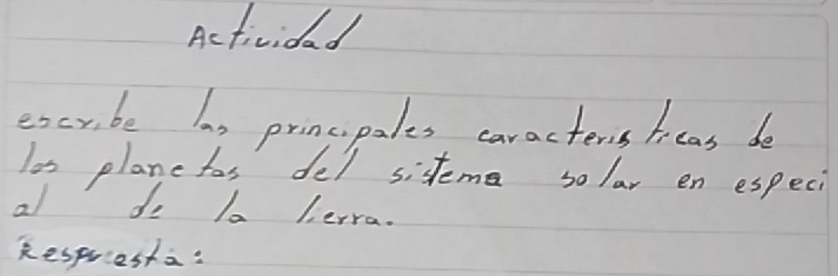 Actividad
escribe las principales caracteristicas de
los planetas del sistema solar en especi
al de la tierra.
Respuesta: